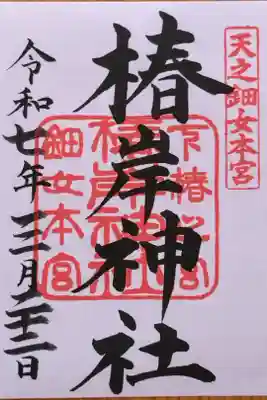 天之鈿女本宮
椿岸神社
椿岸神社
鈿女本宮
令和七年三月二十二日